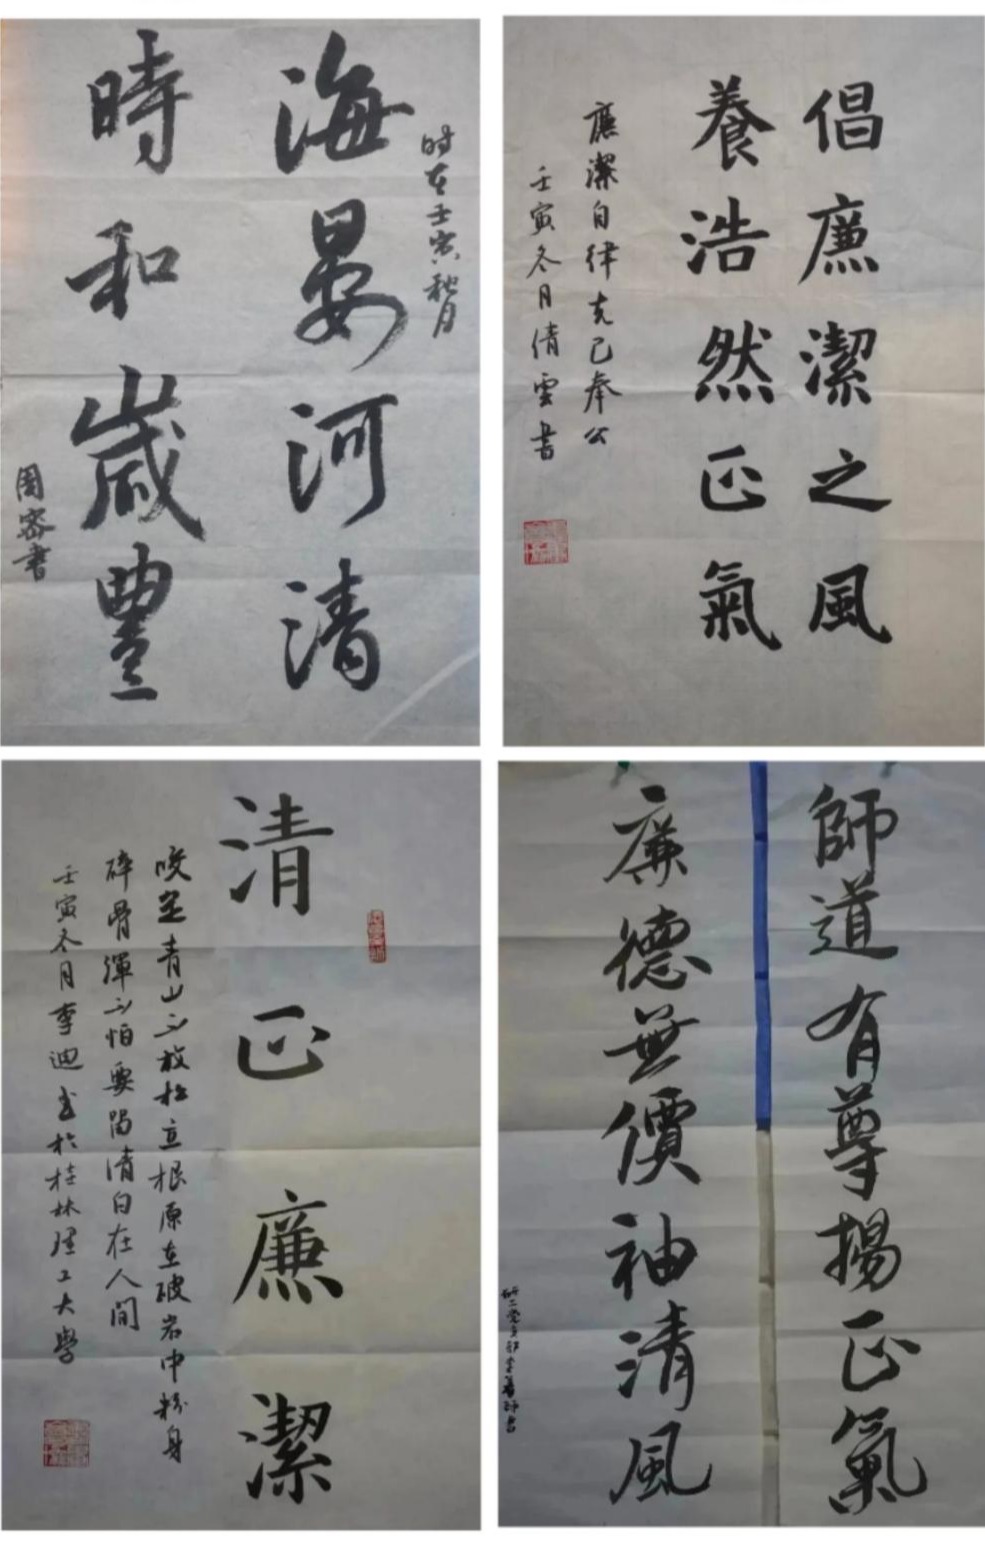 时在壬寅秋月
海晏河清
時和歲豐
周密書
倡廉潔之風
養浩然正氣
廉潔自律克己奉公
壬寅冬月倩雲書
清正廉潔
咬定青山不放松立根原在破岩中粉身
碎骨渾不怕要留清白在人間
壬寅冬月李迪书於桂林理工大學
師道有尊揚正氣
廉德無價袖清風